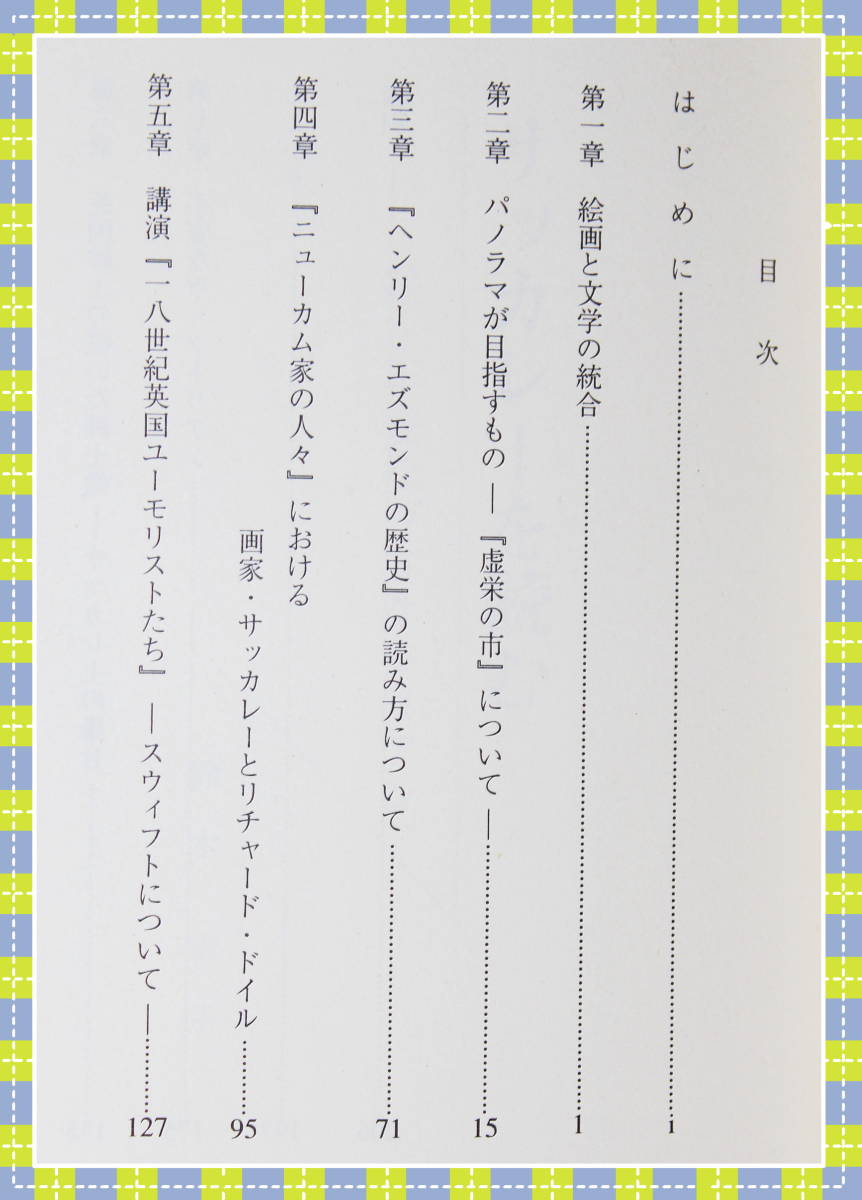 目次
はじめに……………………i
第一章 絵画と文学の統合……………………1
第二章 パノラマが目指すもの ―『虚栄の市』について―……………………15
第三章 『ヘンリー・エズモンドの歴史』の読み方について……………………71
第四章 『ニューカム家の人々』における
画家・サッカレーとリチャード・ドイル…………95
第五章 講演『一八世紀英国ユーモリストたち』 ―スウィフトについて―…………127